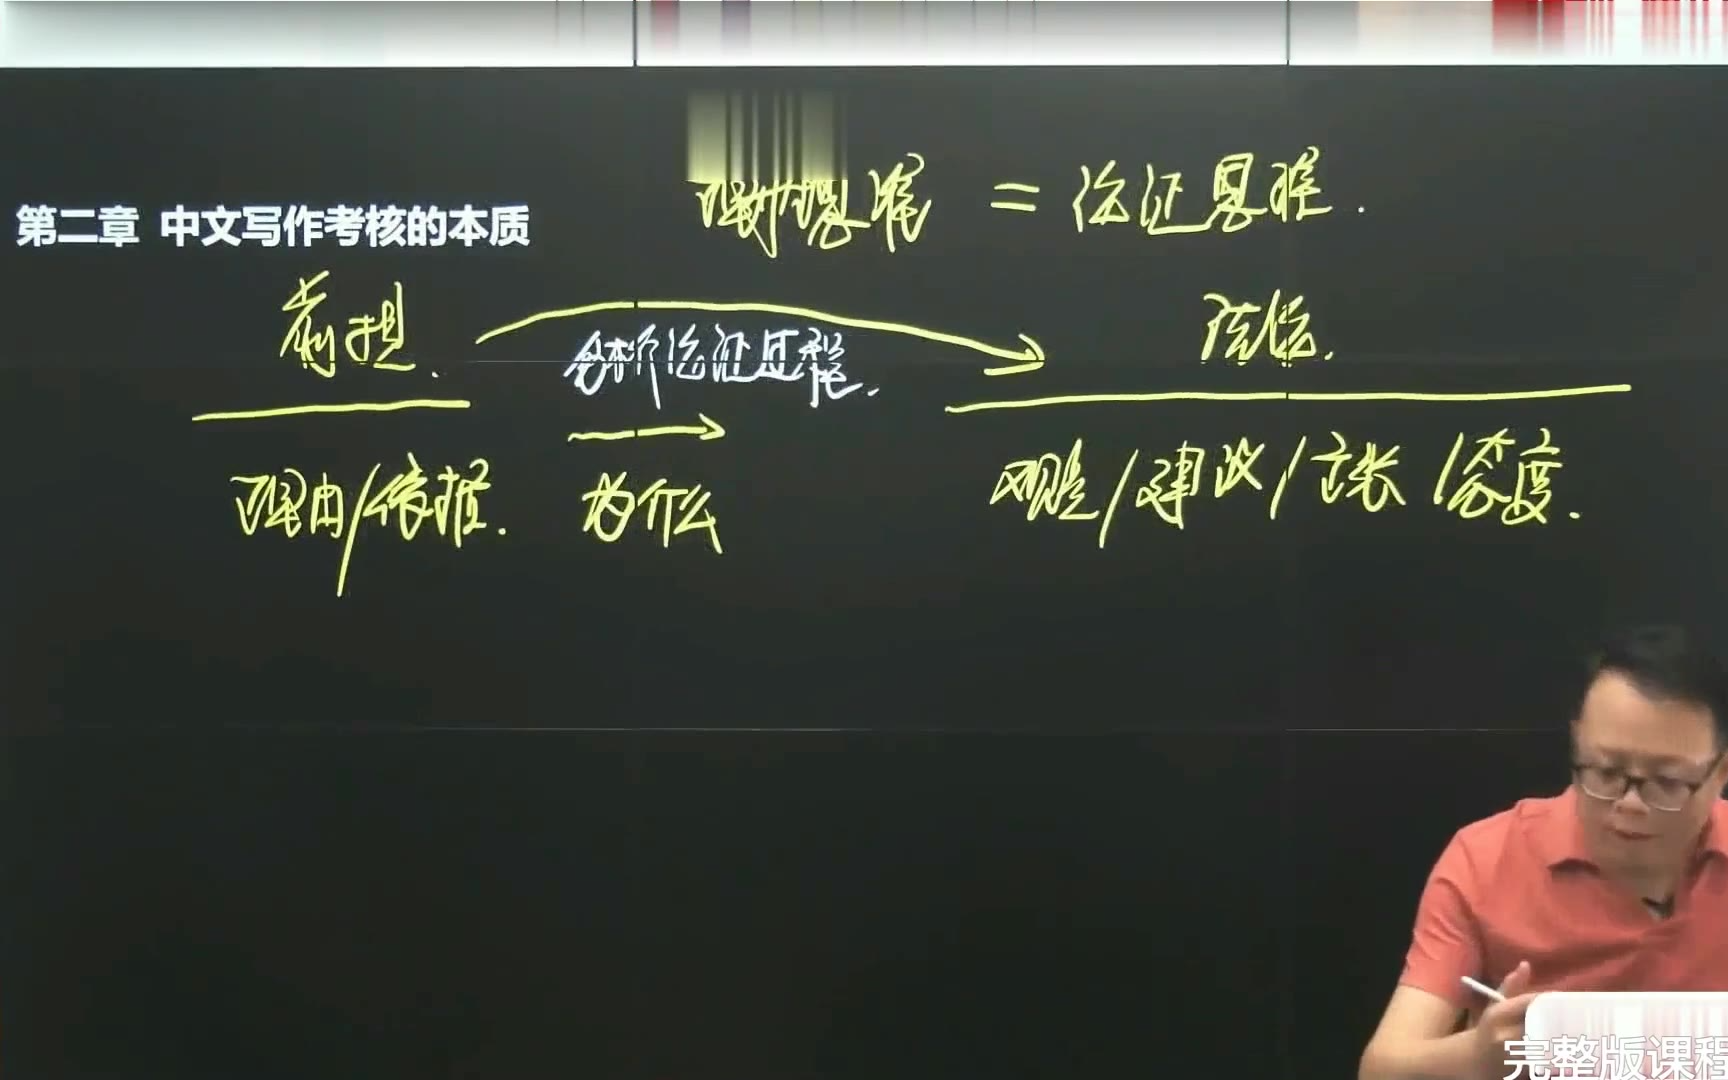 理性思维 = 论证思维.
第二章 中文写作考核的本质
前提. 结论.
整个论证过程.
理由/依据. 为什么 观点/建议/主张/态度.
完整版课程